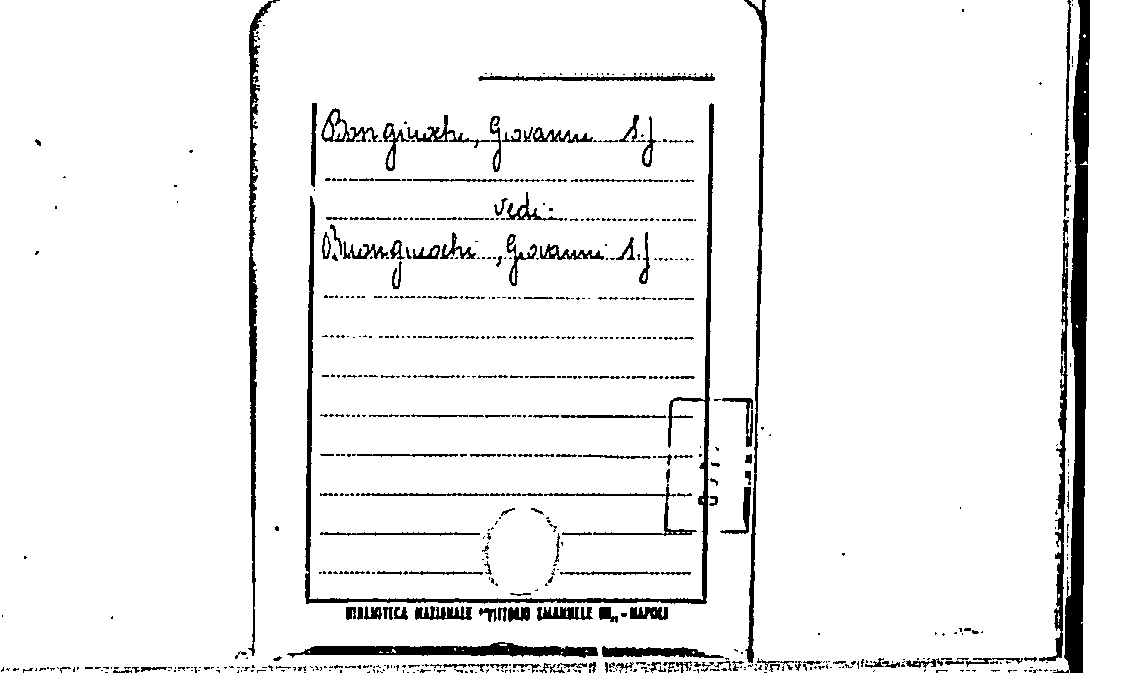 Bongiuochi, Giovanni S.J
vedi:
Buongiuochi, Giovanni S.J
BIBLIOTECA NAZIONALE "VITTORIO EMANUELE III„ - NAPOLI